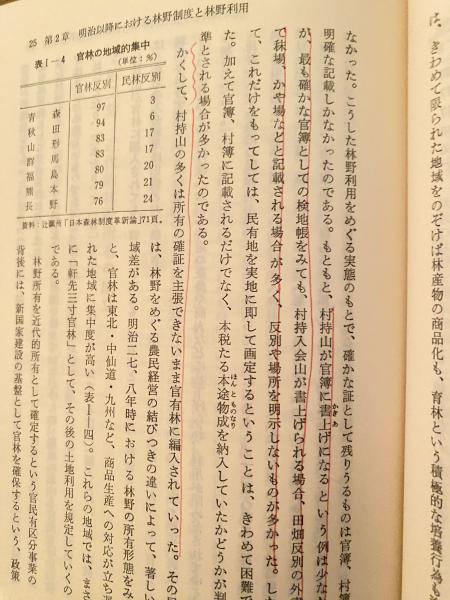 25　第2章　明治以降における林野制度と林野利用
は、きわめて限られた地域をのぞけば林産物の商品化も、育林という積極的な培養行為も
なかった。こうした林野利用をめぐる実態のもとで、確かな証として残りうるものは官簿、村簿
明確な記載しかなかったのである。もともと、村持山が官簿に書上になるという例は少な
かきあ
が、最も確かな官簿としての検地帳をみても、村持入会山が書上げられる場合、田畑反別の外書
で秣場、かや場などと記載される場合が多く、反別や場所を明示しないものが多かった。した
て、これだけをもってしては、民有地を実地に即して画定するということは、きわめて困難で
た。加えて官簿、村簿に記載されるだけでなく、本税たる本途物成を納入していたかどうかが判
ほんとものなり
準とされる場合が多かったのである。
かくして、村持山の多くは所有の確証を主張できないまま官有林に編入されていった。その
は、林野をめぐる農民経営の結びつきの違いによって、著しい
域差がある。明治二七、八年時における林野の所有形態をみ
と、官林は東北・中仙道・九州など、商品生産への対応が立ち遅
れた地域に集中度が高い（表Ⅰ―四）。これらの地域では、まさ
に「軒先三寸官林」として、その後の土地利用を規定していくの
である。
林野所有を近代的所有として確定するという官民有区分事業の
背後には、新国家建設の基盤として官林を確保するという、政策
表Ⅰ-4　官林の地域的集中
（単位：％）
官林反別　民林反別
青森　97　3
秋田　94　6
山形　83　17
群馬　83　17
福島　80　20
熊本　79　21
長野　76　24
資料：辻瀛州『日本森林制度革新論』71頁。